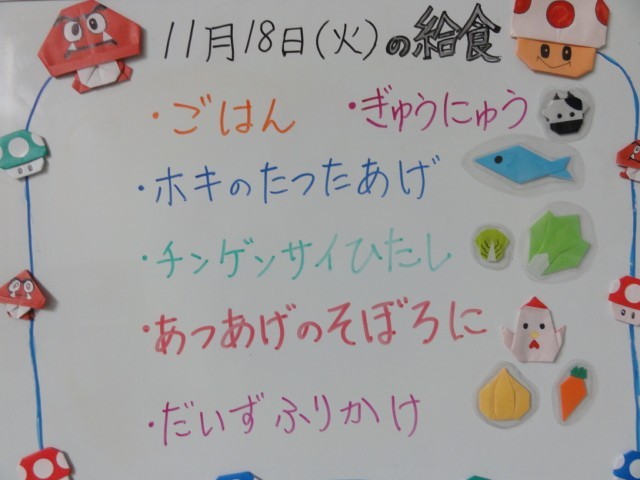 11月18日(火)の給食
・ごはん ・ぎゅうにゅう
・ホキのたつたあげ
・チンゲンサイひたし
・あつあげのそぼろに
・だいずふりかけ